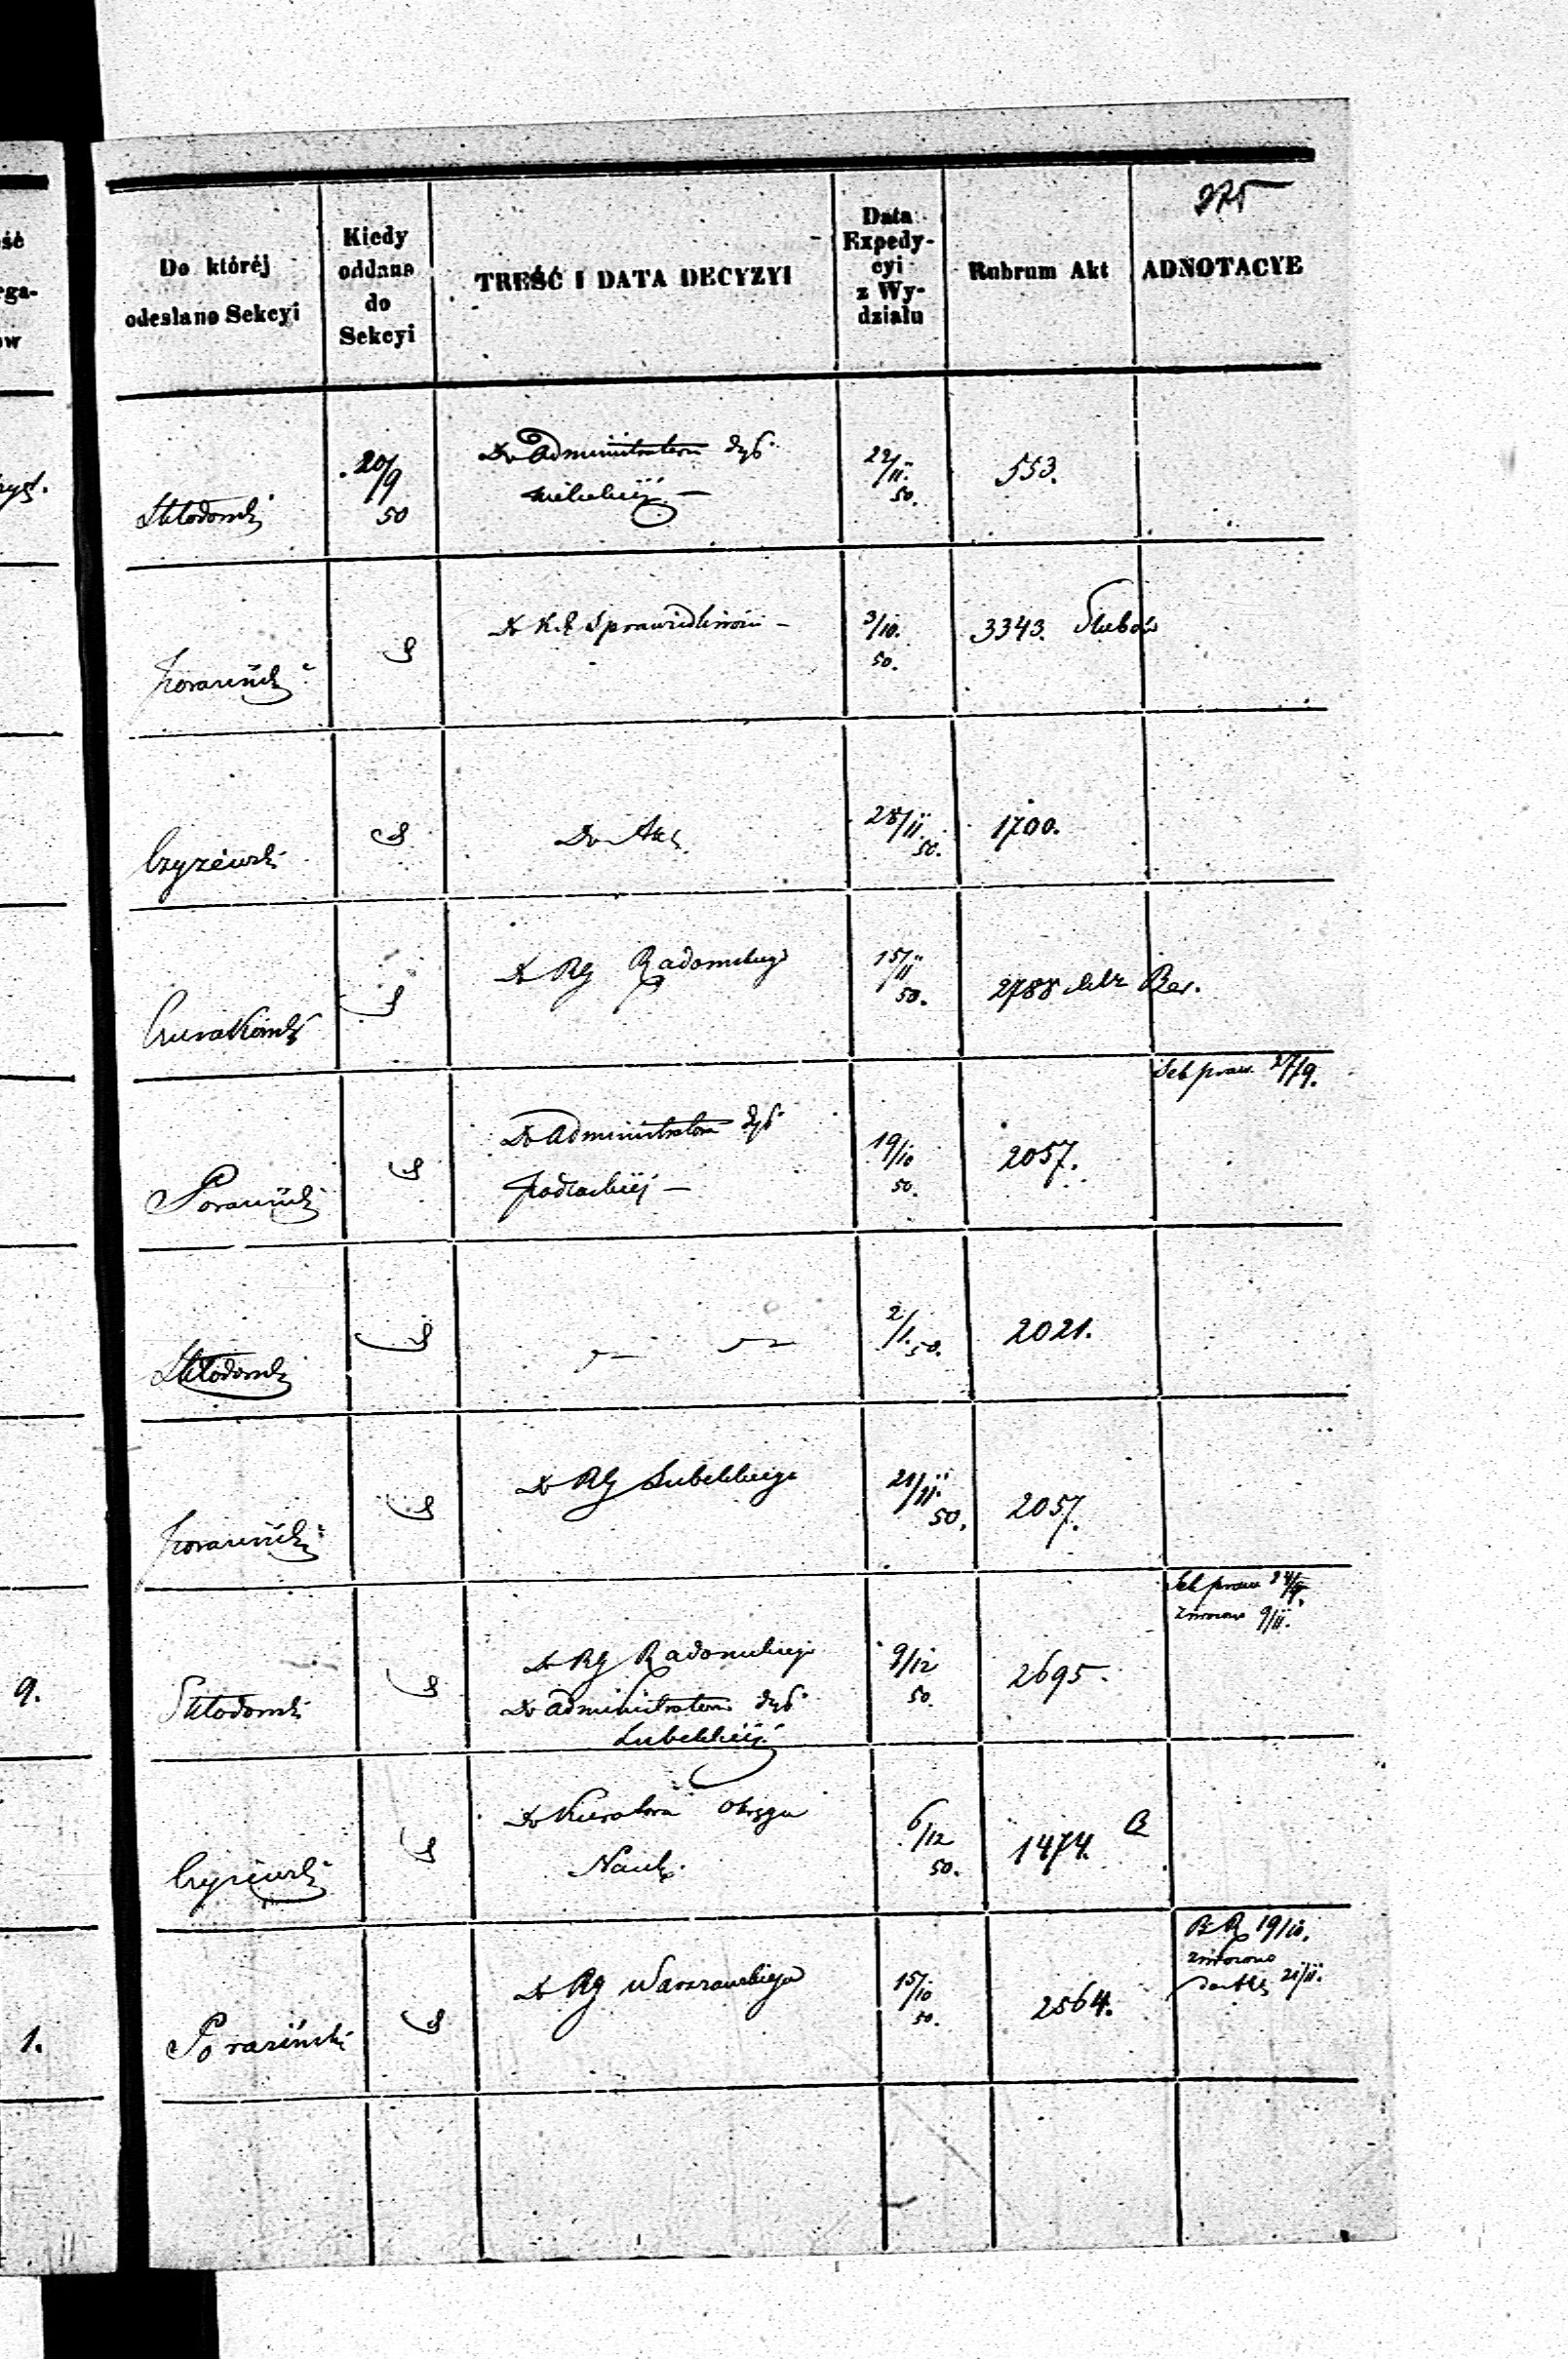 275
ść
ega-
ow
Do któréj
odesłano Sekcyi
Kiedy
oddano
do
Sekcyi
TREŚĆ I DATA DECYZYI
Data
Expedy-
cyi
z Wy-
działu
Rubrum Akt
ADNOTACYE
Skłodowski
20/9
50
Do Administratora dyec.
22/11.
50.
553.
Porazińsk
Do K. R. Sprawiedliwości –
3/10.
50.
3343. Ślubów
Czyżewski
Do Akt
28/11.
50.
1700.
Do RG Radomskiego
15/11
50.
2788
Bes.
Poraziński
Do Administratora dyec.
Podlaskiéj –
19/10
50.
2057.
Sek praw. 27/9.
Skłodowski
2/1. 50.
2021.
Poraziński
Do RG Lubelskiego
21/11.
50.
2057.
9.
Skłodowski
Do RG Radomskiego
Do Administratora dyec.
Lubelskiéj
9/12
50.
2695.
Sek praw
zwrócono 9/11.
Czyżewski
Do Kuratora Okręgu
Nauk.
6/12
50.
1474. B
1.
Poraziński
Do RG Warszawskiego
15/10
50.
2564.
19/10.
zwrócono
21/11.